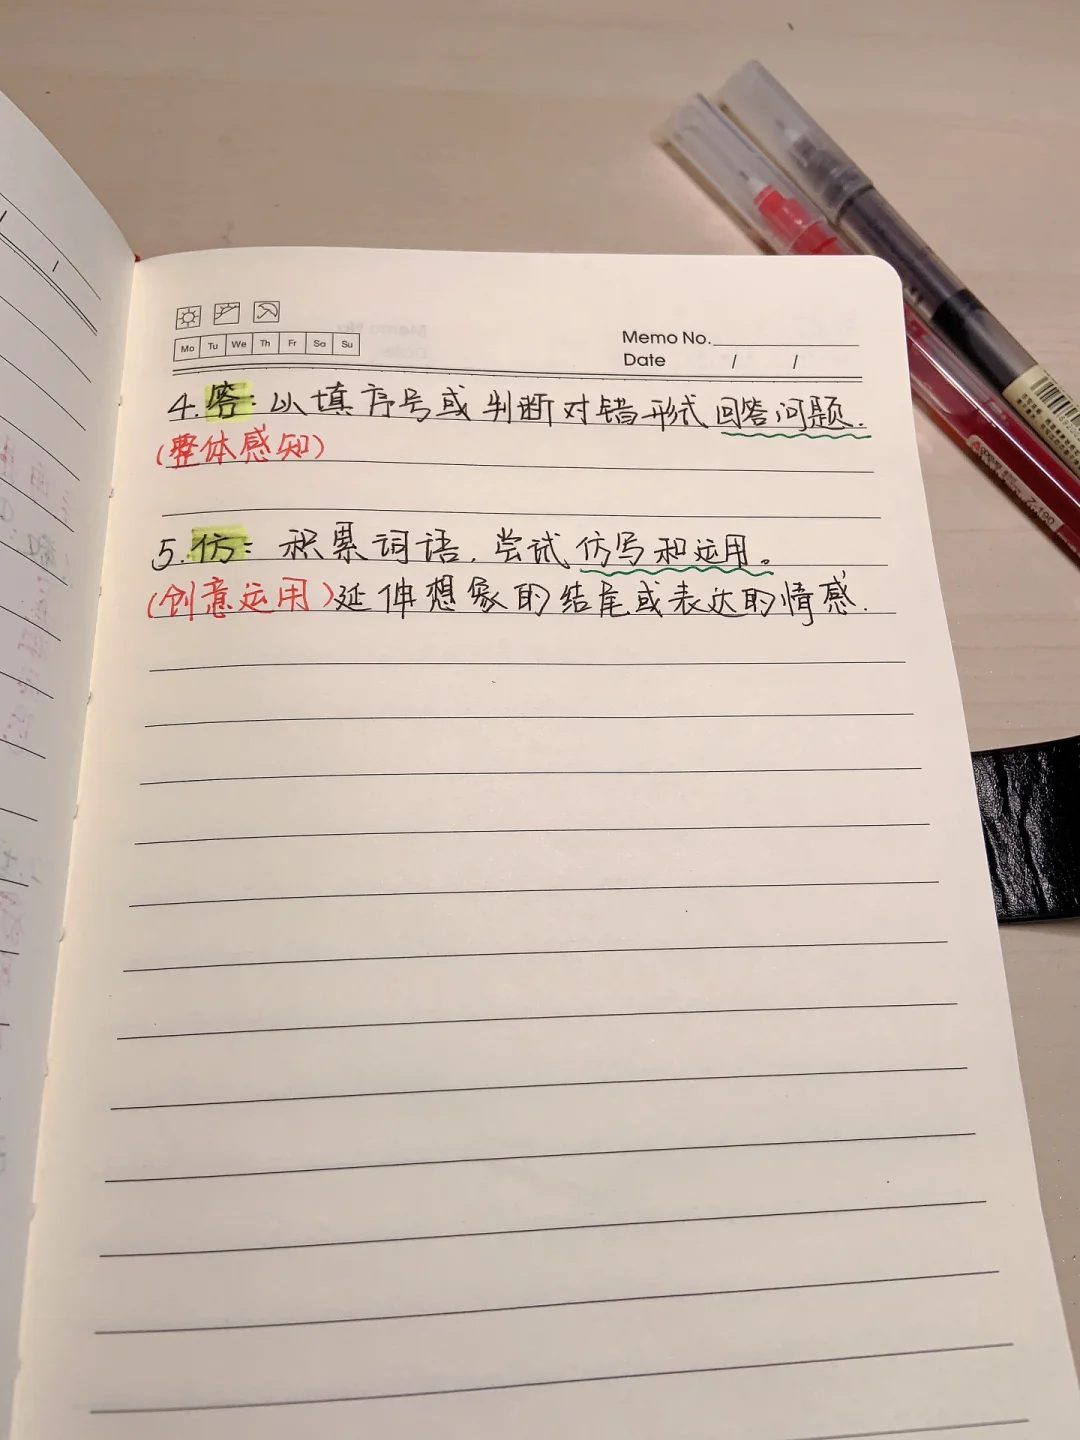 Mo Tu We Th Fr Sa Su
Memo No.
Date / /
4. 答: 以填序号或判断对错形式回答问题.
(整体感知)
5. 仿: 积累词语, 尝试仿写和运用。
(创意运用)延伸想象的结尾或表达的情感.